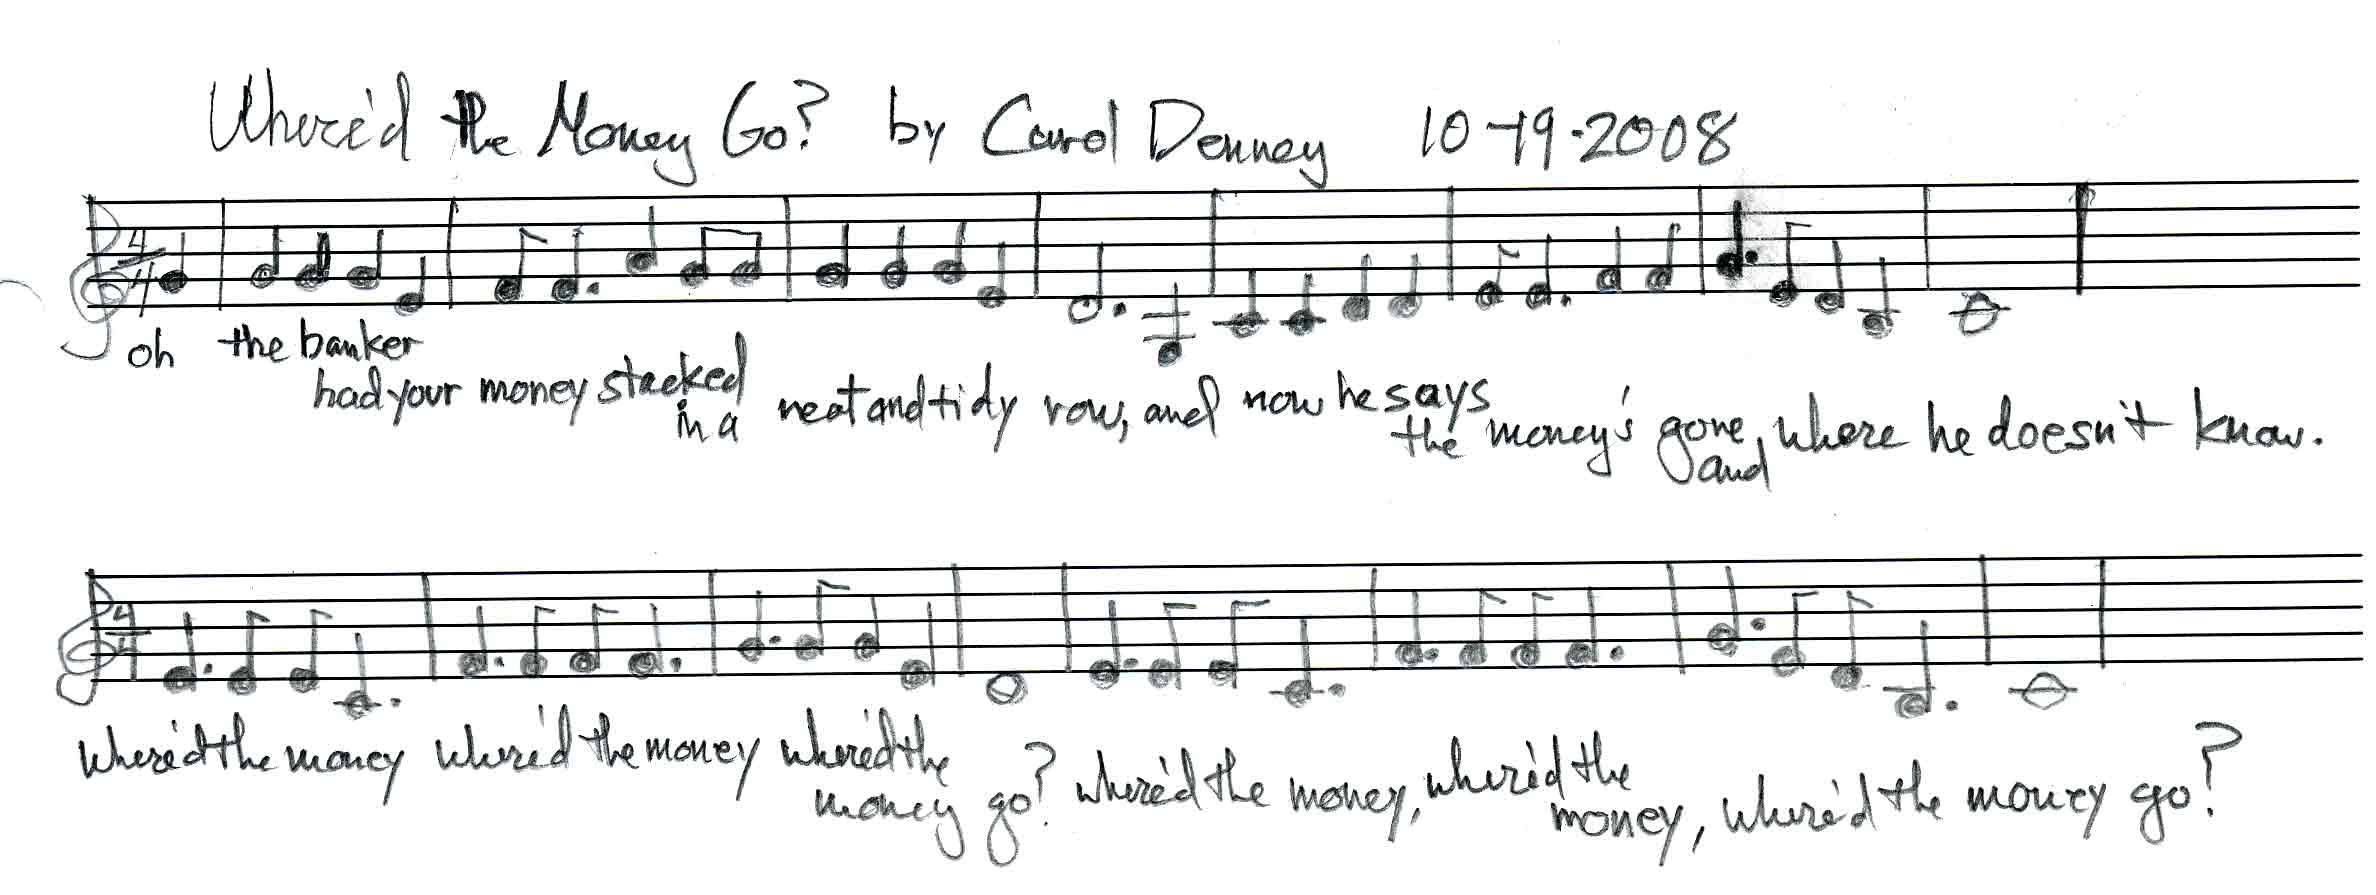 Where'd the Money Go? by Carol Denney 10-19-2008
4/4
oh the banker
had your money stacked
in a neat and tidy row, and now he says
the money's gone, and where he doesn't know.
4/4
where'd the money where'd the money where'd the
money go? where'd the money, where'd the
money, where'd the money go?